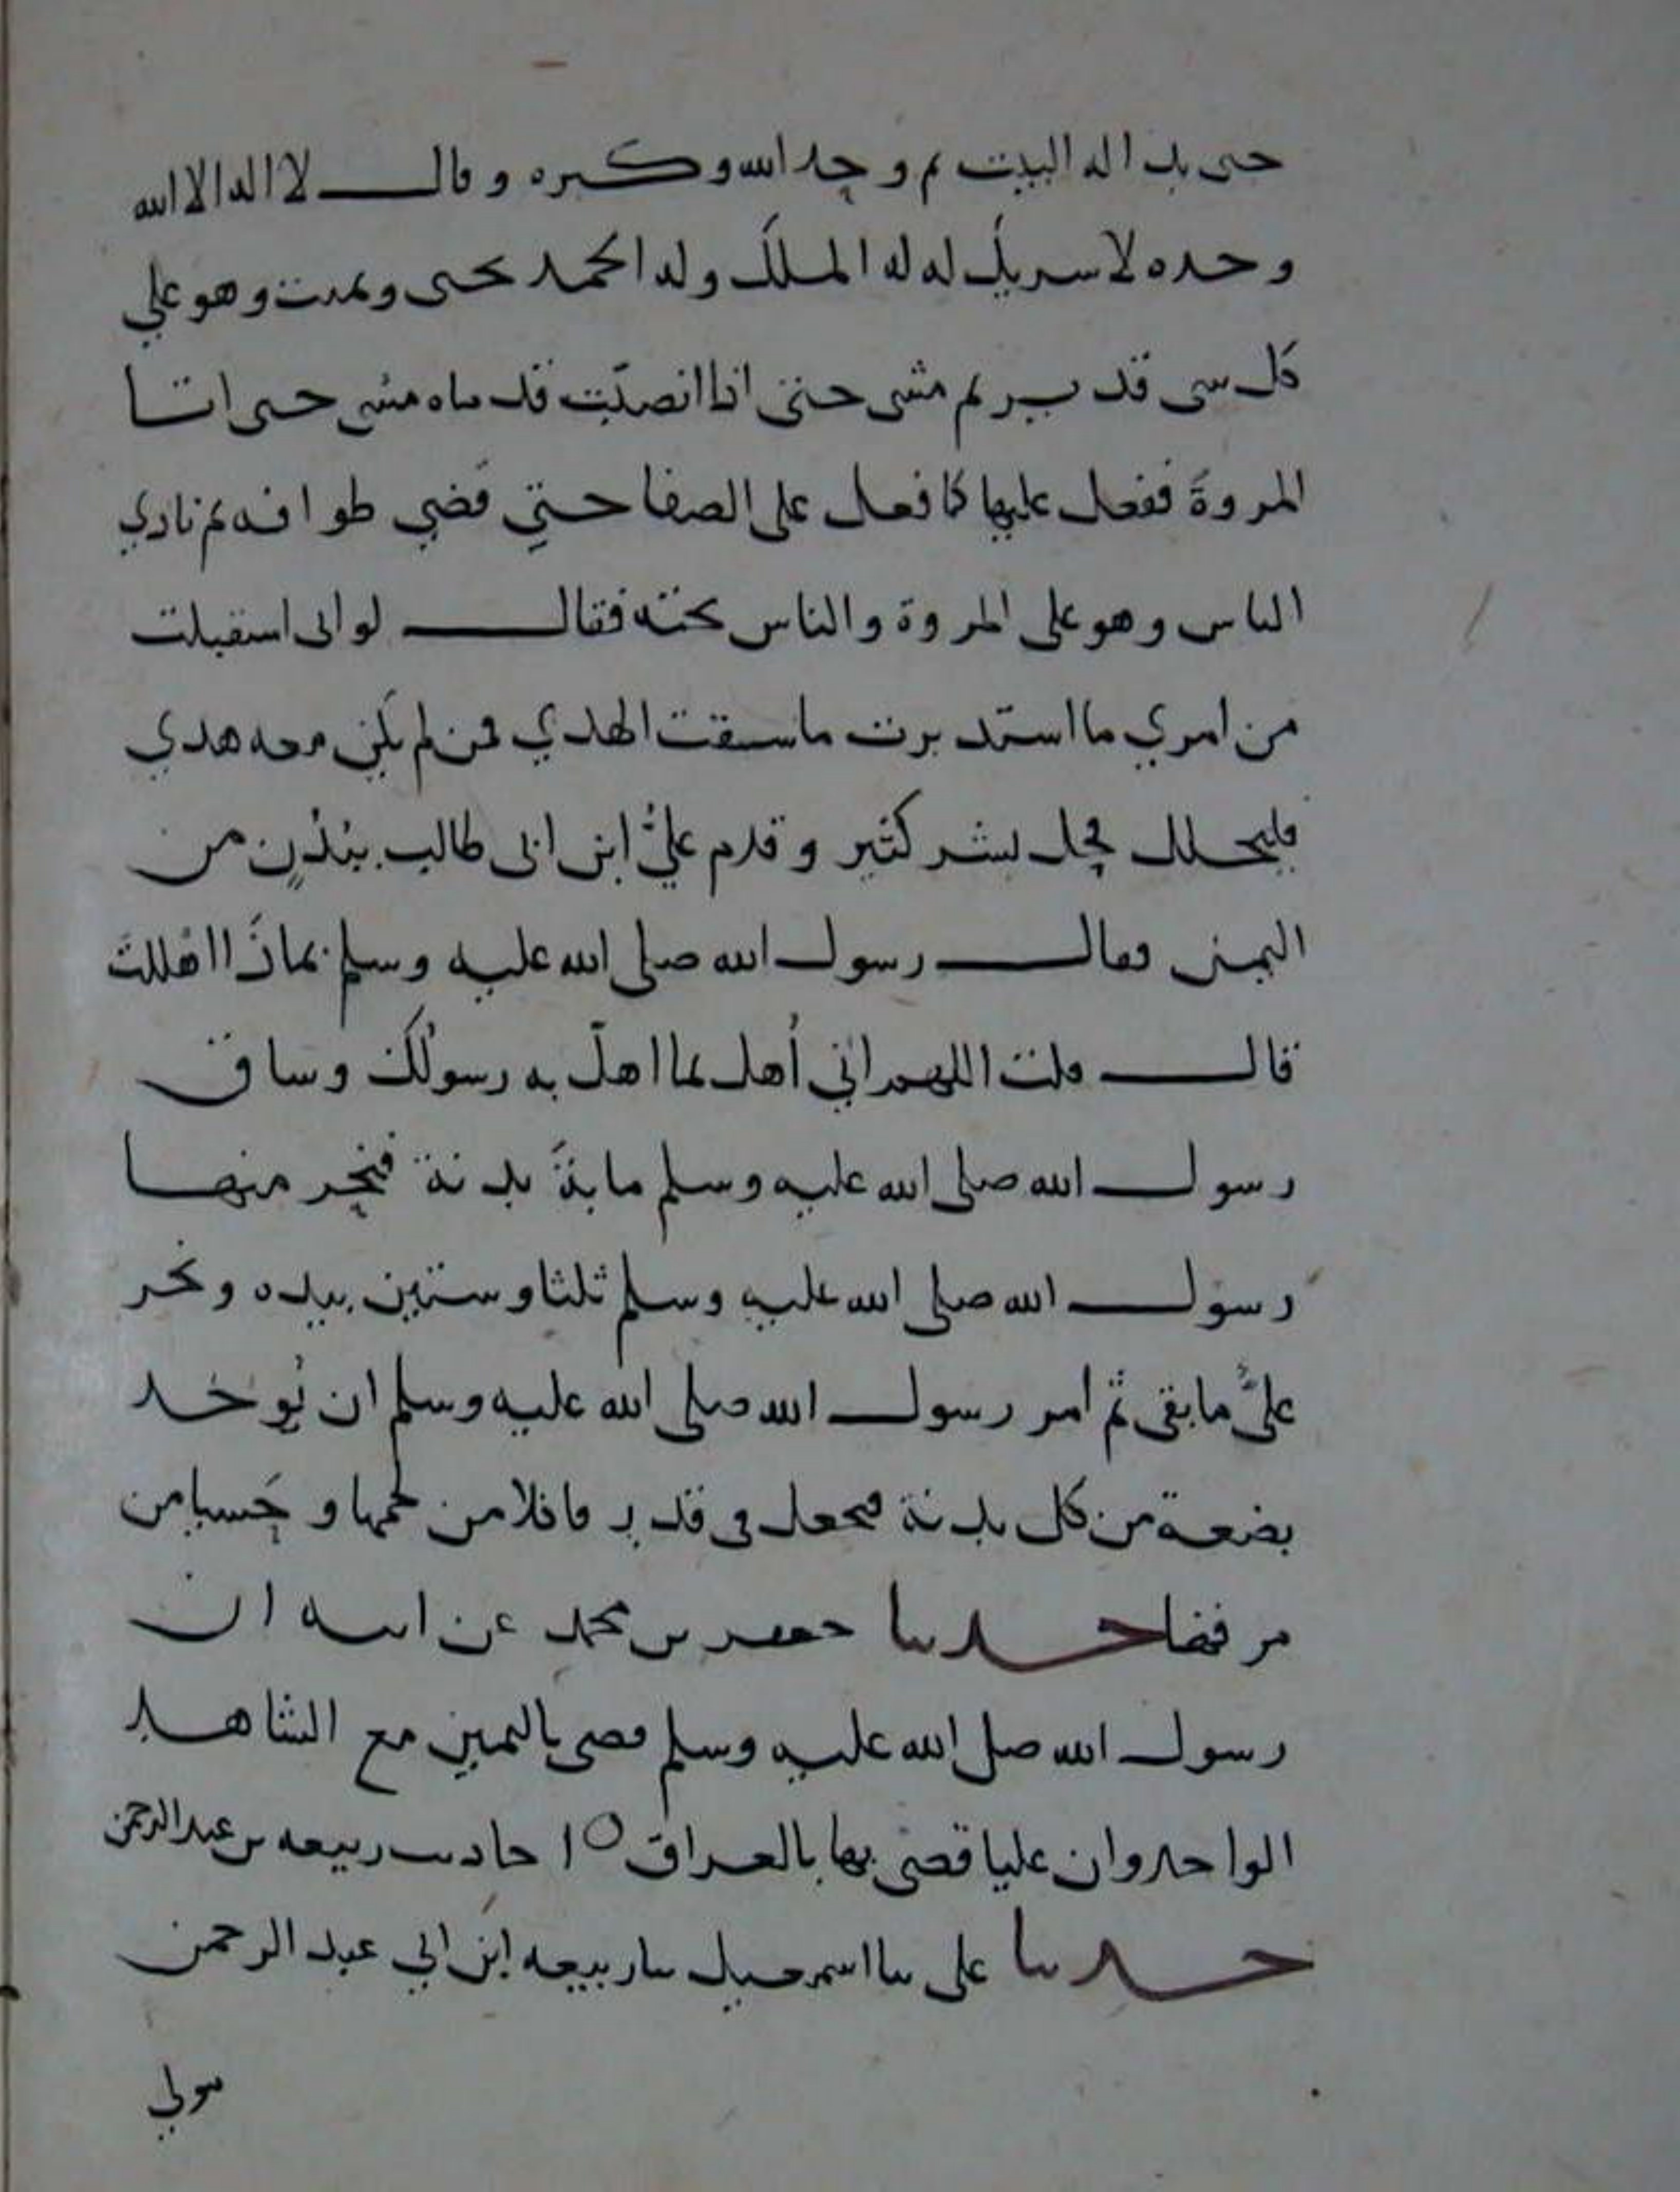 حتى بدا له البيت ثم وحد الله وكبره وقال لا اله الا الله
وحده لا سريك له له الملك وله الحمد يحيى ويميت وهو علي
كل سى قدير ثم مشى حتى اذا انصبّت قدماه مشى حتى اتا
المروة ففعل عليها كما فعل على الصفا حتي قضي طوافه ثم نادي
الناس وهو على المروة والناس تحته فقال لو انى استقبلت
من امري ما استدبرت ما سقت الهدي فمن لم يكن معه هدي
فليحلل فحل بشر كثير وقدم عليُّ ابن ابى طالب ببُدْنٍ من
اليمن فقال رسول الله صلى الله عليه وسلم بماذَا اهْللتَ
قال قلت اللهم اني أُهل بما اهلّ به رسولُكَ وساق
رسول الله صلى الله عليه وسلم مايةَ بدنة فنحر منها
رسول الله صلى الله عليه وسلم ثلثا وستين بيده ونحر
علىٌّ ما بقى ثم امر رسول الله صلى الله عليه وسلم ان يُوخد
بضعة من كل بدنة فيحعل فى قدر فاكلا من لحمها وحَسيا من
مرقها حدىىا حعفر بن محمد عن ابيه ان
رسول الله صلى الله عليه وسلم قضى باليمين مع الشاهد
الواحد وان عليا قضى بها بالعراق ه احاديث ربيعه بن عبد الرحمن
حدىىا على ىىا اسمعيل ىىا ربيعه ابن ابي عبد الرحمن
مولي